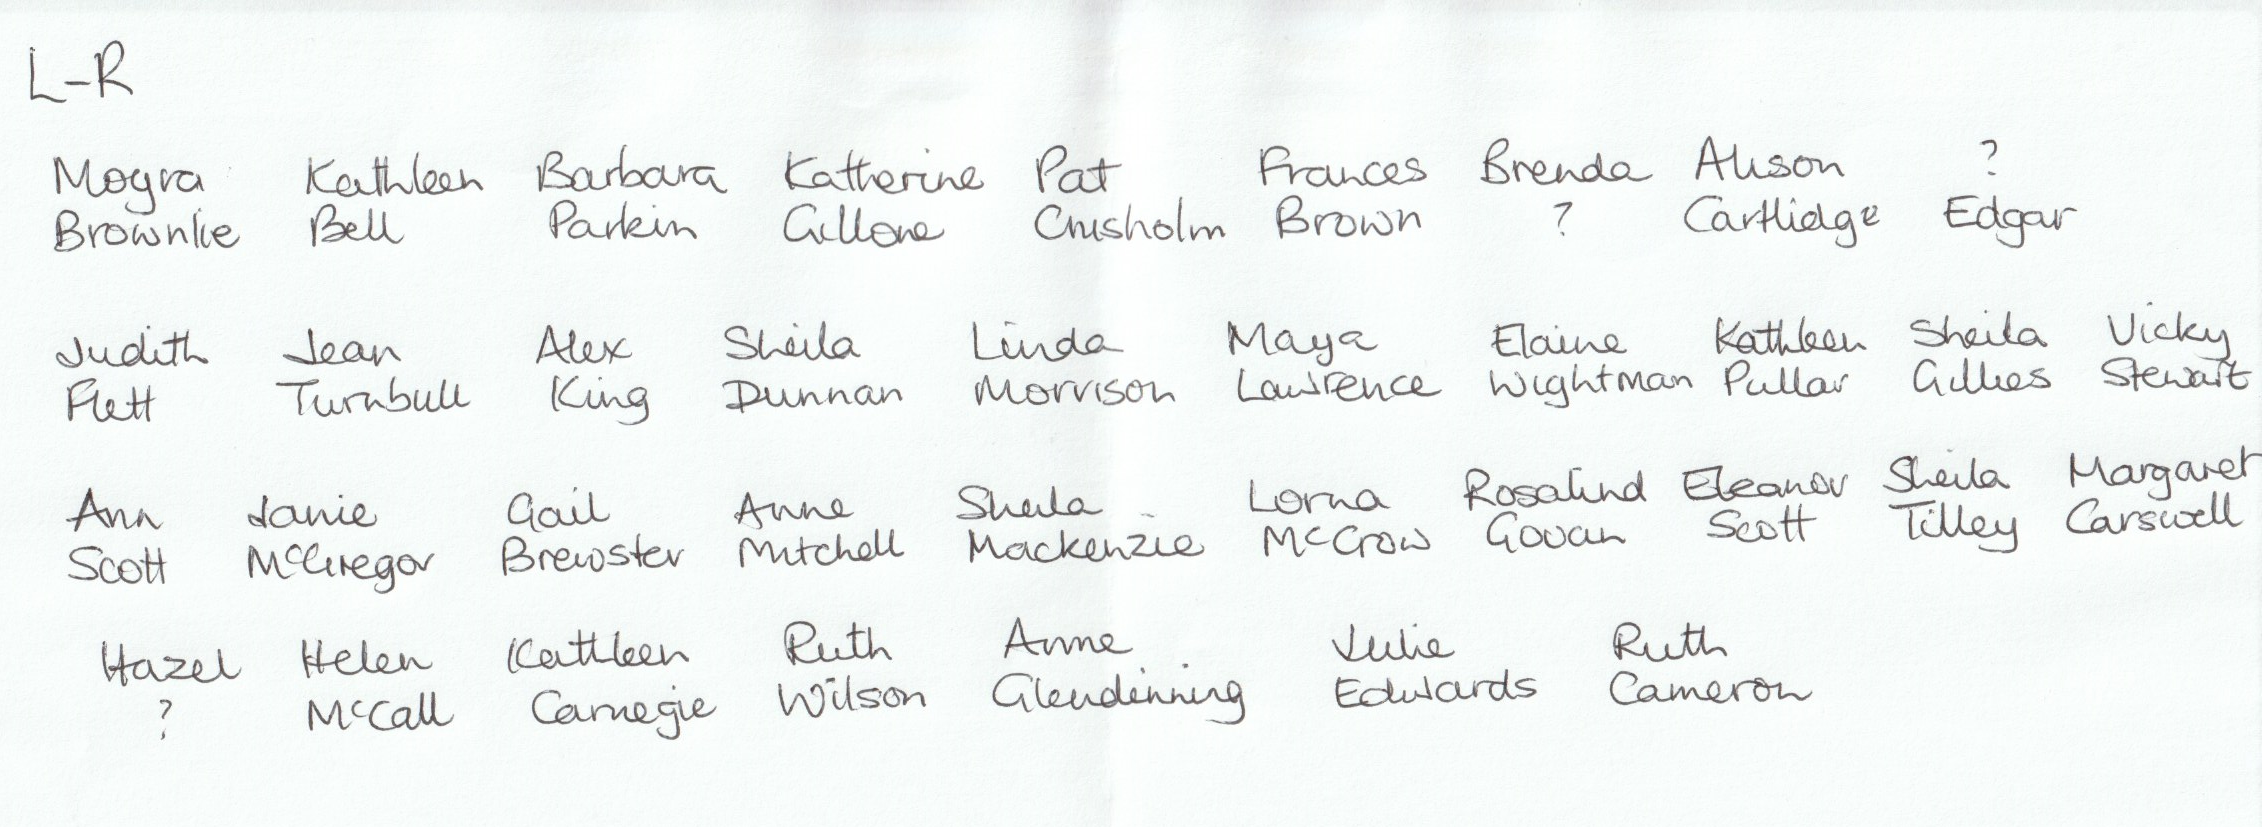 L-R
Moyra Kathleen Barbara Katherine Pat Frances Brenda Alison ?
Brownlie Bell Parkin Gillone Chisholm Brown ? Cartlidge Edgar
Judith Jean Alex Sheila Linda Maya Elaine Kathleen Sheila Vicky
Flett Turnbull King Dunnan Morrison Lawrence Wightman Pullar Gillies Stewart
Ann Janie Gail Anne Sheila Lorna Rosalind Eleanor Sheila Margaret
Scott McGregor Brewster Mitchell Mackenzie McCrow Govan Scott Tilley Carswell
Hazel Helen Kathleen Ruth Anne Julie Ruth
? McCall Carnegie Wilson Glendinning Edwards Cameron